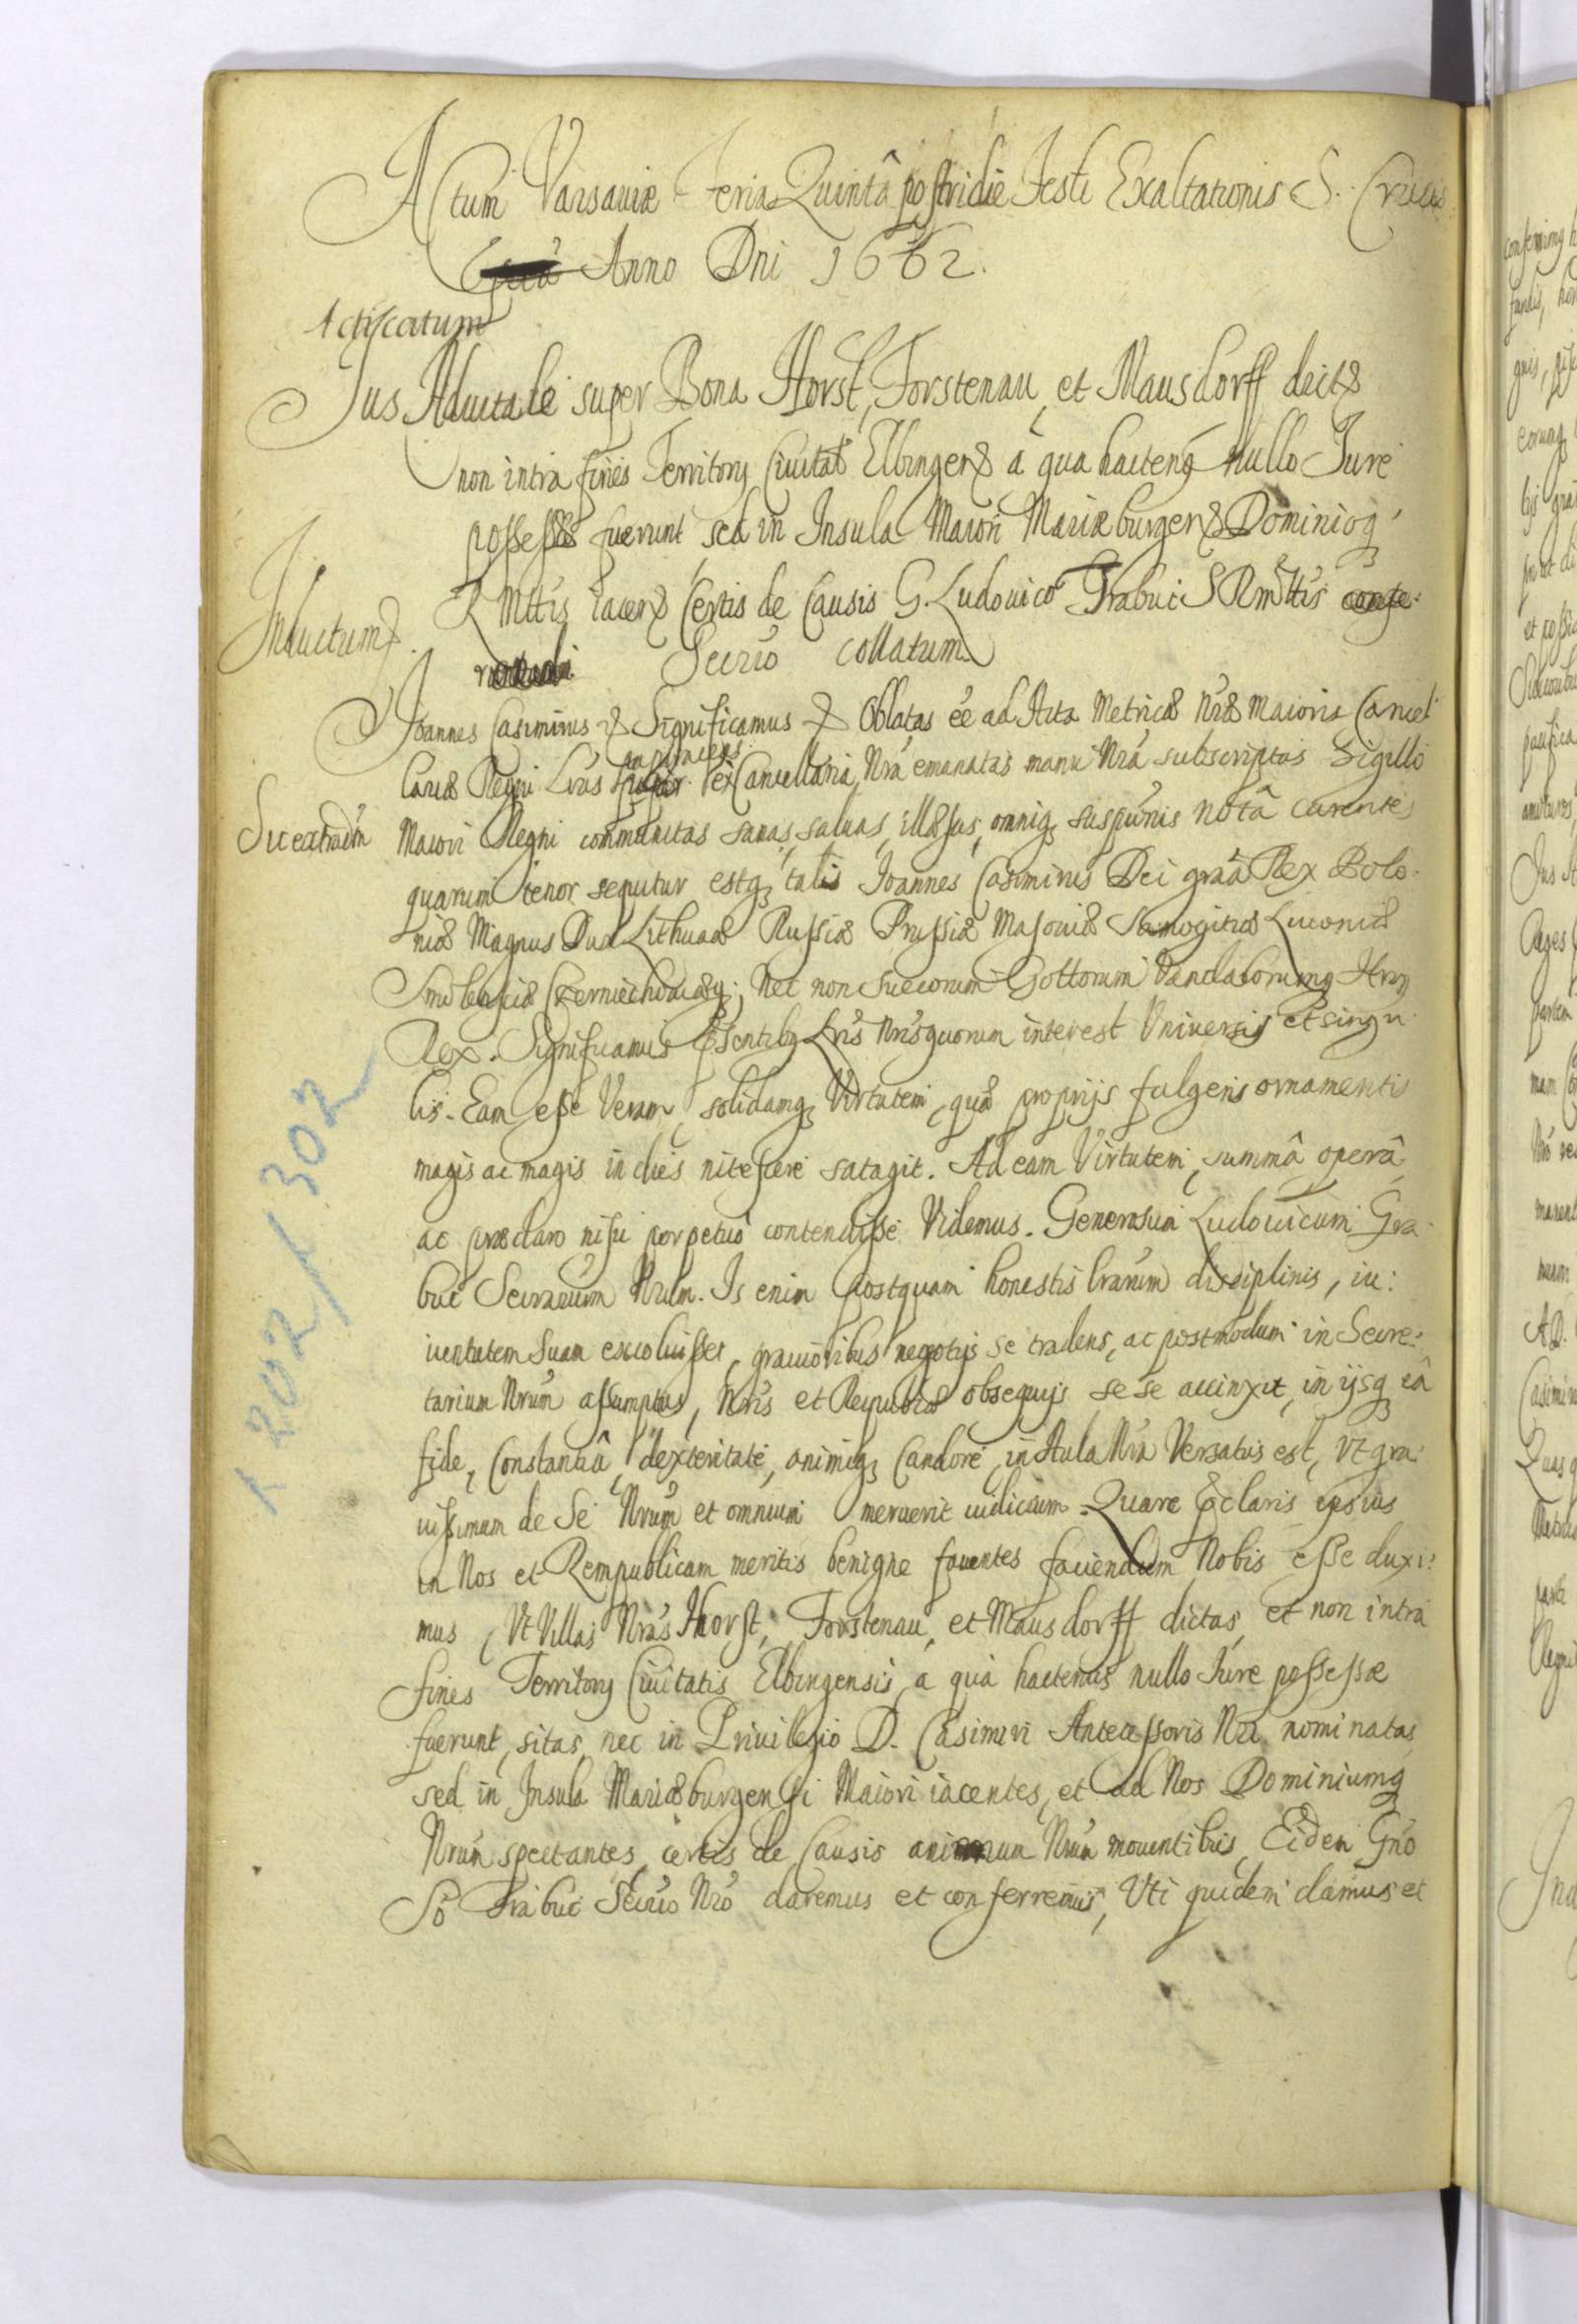 Actum Varsaviæ Feria Quintâ postridie Festi Exaltationis S. Crucis
Anno Dni 1662.
Actificatum
Jus Aduitale super Bona Horst, Forstenau, et Mausdorff
non intra fines Territorÿ Ciuitat Elbingen à qua hacteng nullo Jure
possessæ fuerunt sed in Insula Maiori Mariæburgen Dominioq
Inductum
R Mttis iacen Certis de Causis G. Ludouico Grabuc S R Mttis
Secrio collatum
Joannes Casimirus & Significamus & Oblatas ee ad Acta Metricæ Nræ Maioris Cancel
lariæ Regni Lras papiraceas ex Cancellaria Nrâ emanatas manu Nrâ subscriptas Sigillo
Suextradm
Maiori Regni communitas sanas, saluas, illæsas, omniq suspnis notâ carentes
quarum tenor sequitur estq talis Joannes Casimirus Dei graâ Rex Polo
niæ Magnus Dux Lithuaæ Russiæ Prussiæ Masouiæ Samogitiæ Liuoniæ
Smolensciæ Czerniechouiæq; Nec non Suecorum Gottorum Vandalorumq Hrÿ
Rex. Significamus Psentibq Lris Nris quorum interest Vniuersis et singu
lis. Eam esse Veram, solidamq Virtutem, quæ proprijs fulgens ornamentis
magis ac magis in dies nitescere satagit. Ad eam Virtutem, summâ operâ,
ac præclaro nisu perpetuo contendisse Videmus. Generosum Ludouicum Gra
buc Secrarium Nrum. Is enim postquam honestis lrarum disciplinis, iu:
uentutem Suam excoluisset, grauioribus negotijs se tradens, ac postmodum in Secre:
tarium Nrum assumptus, Nris et Reipublæ obsequijs se se accinxit, in ijsq eâ
fide, Constantiâ, dexteritate, animiq Candore, in Aula Nra Versatus est, Vt gra
uissimum de Se Nrum et omnium meruerit iudicium. Quare Pclaris ipsius
in Nos et Rempublicam meritis benigne fauentes faciendum Nobis esse duxi:
mus, Vt Villas Nras Horst, Forstenau, et Mausdorff dictas, et non intra
fines Territorÿ Ciuitatis Elbingensis, a qua hactenus nullo Jure possessæ
fuerunt, sitas, nec in Priuilegio D. Casimiri Antecessoris Nri nominatas,
sed in Insula Mariæburgensi Maiori iacentes, et ad Nos Dominiumq
Nrum spectantes, certis de Causis animum Nrum mouentibus, Eidem Gno
Grabuc Secrio Nro daremus et conferremus, Vti quidem damus et